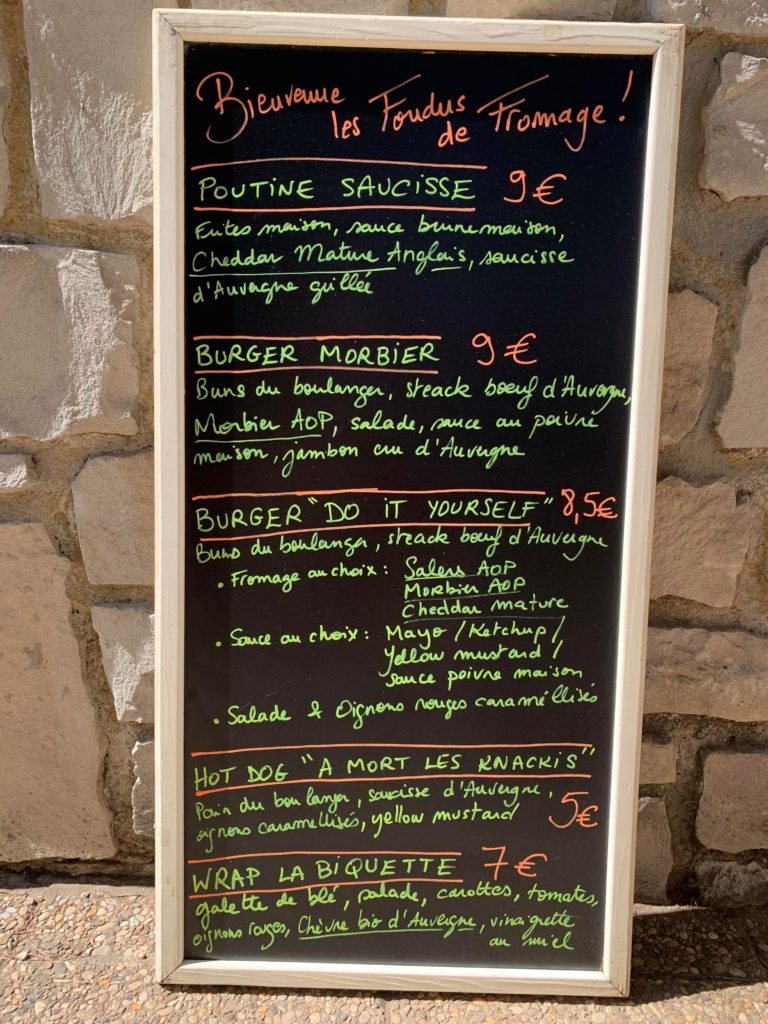 Bienvenue
les Fondus
de Fromage !
POUTINE SAUCISSE 9€
Frites maison, sauce brune maison,
Cheddar Mature Anglais, saucisse
d'Auvergne grillée
BURGER MORBIER 9€
Buns du boulanger, steack boeuf d'Auvergne,
Morbier AOP, salade, sauce au poivre
maison, jambon cru d'Auvergne
BURGER "DO IT YOURSELF" 8,5€
Buns du boulanger, steack boeuf d'Auvergne
• Fromage au choix : Salers AOP
Morbier AOP
Cheddar mature
• Sauce au choix : Mayo / Ketchup /
Yellow mustard /
sauce poivre maison
• Salade & Oignons rouges caraméllisés
HOT DOG "A MORT LES KNACKIS"
Pain du boulanger, saucisse d'Auvergne,
oignons caramellisés, yellow mustard 5€
WRAP LA BIQUETTE 7€
galette de blé, salade, carottes, tomates,
oignons rouges, Chèvre bio d'Auvergne, vinaigrette
au miel